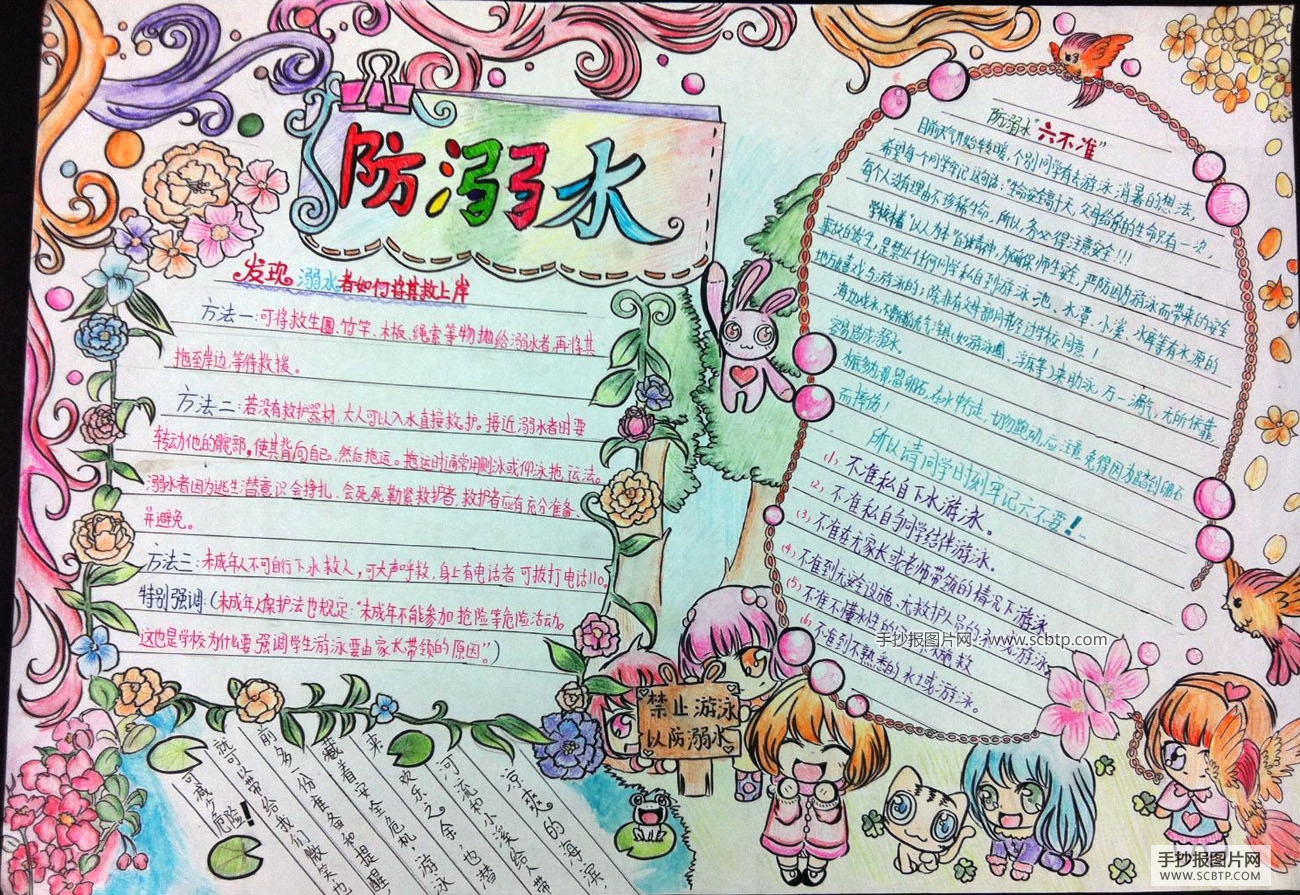 防溺水
发现溺水者如何将其救上岸
方法一:可将救生圈、竹竿、木板、绳索等物抛给溺水者,再将其
拖至岸边,等待救援。
方法二:若没有救护器材,大人可以入水直接救护。接近溺水者时要
转动他的髋部,使其背向自己,然后拖运。拖运时通常用侧泳或仰泳拖运法。
溺水者因为逃生潜意识会挣扎,会死死勒紧救护者,救护者应有充分准备,
并避免。
方法三:未成年人不可自行下水救人,可大声呼救,身上有电话者可拔打电话110。
特别强调:(未成年人保护法也规定:“未成年不能参加抢险等危险活动。
这也是学校为什么要强调学生游泳要由家长带领的原因”。)
凉爽的海滨,
河流和小溪给人带
来欢乐之余,也潜
藏着安全危机,游泳
前多一份准备和提醒
就可以带给我们微笑也
可减少危险!
禁止游泳
以防溺水
防溺水“六不准”
目前天气开始转暖,个别同学有去游泳消暑的想法,
希望每个同学牢记这句话:“生命安全高于天,父母给你的生命只有一次,
每个人没有理由不珍稀生命,所以,务必得注意安全!!!
学校本着“以人为本”的精神,为确保师生安全,严防因游泳而带来的安全
事故的发生,是禁止任何同学私自到游泳池、水潭、小溪、水库等有水源的
地方嬉戏与游泳的;除非有大人陪同并经过学校同意!
万一漏气,无所依靠,
容易造成溺水
水底多为滑溜卵石,在水中行走,切勿跑动,应注意,免得因为踏到卵石
而摔伤!
所以请同学时刻牢记六不要!
(1) 不准私自下水游泳。
(2) 不准私自与同学结伴游泳。
(3) 不准在无家长或老师带领的情况下游泳
(4) 不准到无安全设施、无救护人员的水域游泳。
(5) 不准不懂水性的
(6) 不准到不熟悉的水域游泳。
手抄报图片网 www.scbtp.com
手抄报图片网
WWW.SCBTP.COM